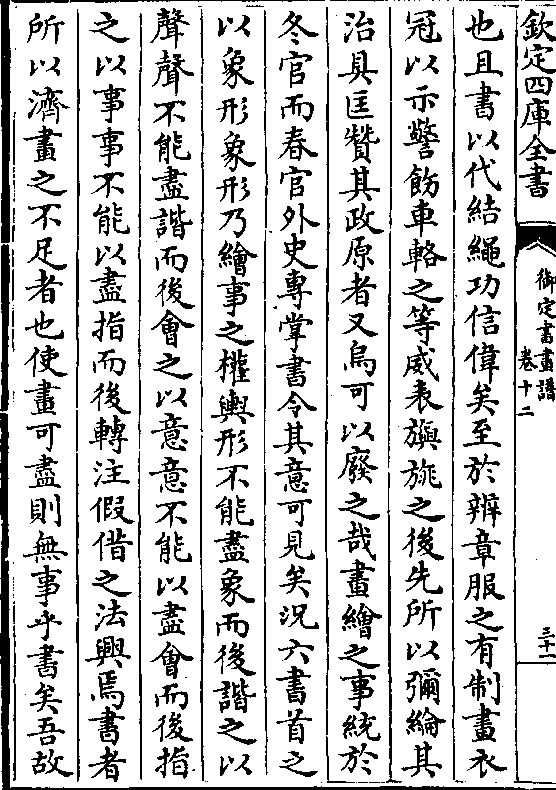 欽定四庫全書
御定書畫譜
卷十二
三十一
也且書以代結繩功信偉矣至於辨章服之有制畫衣
冠以示警飭車輅之等威表旟旐之後先所以彌綸其
治具匡贊其政原者又烏可以廢之哉畫繪之事統於
冬官而春官外史專掌書令其意可見矣況六書首之
以象形象形乃繪事之權輿形不能盡象而後諧之以
聲聲不能盡諧而後會之以意意不能以盡會而後指
之以事事不能以盡指而後轉注假借之法興焉書者
所以濟畫之不足者也使畫可盡則無事乎書矣吾故